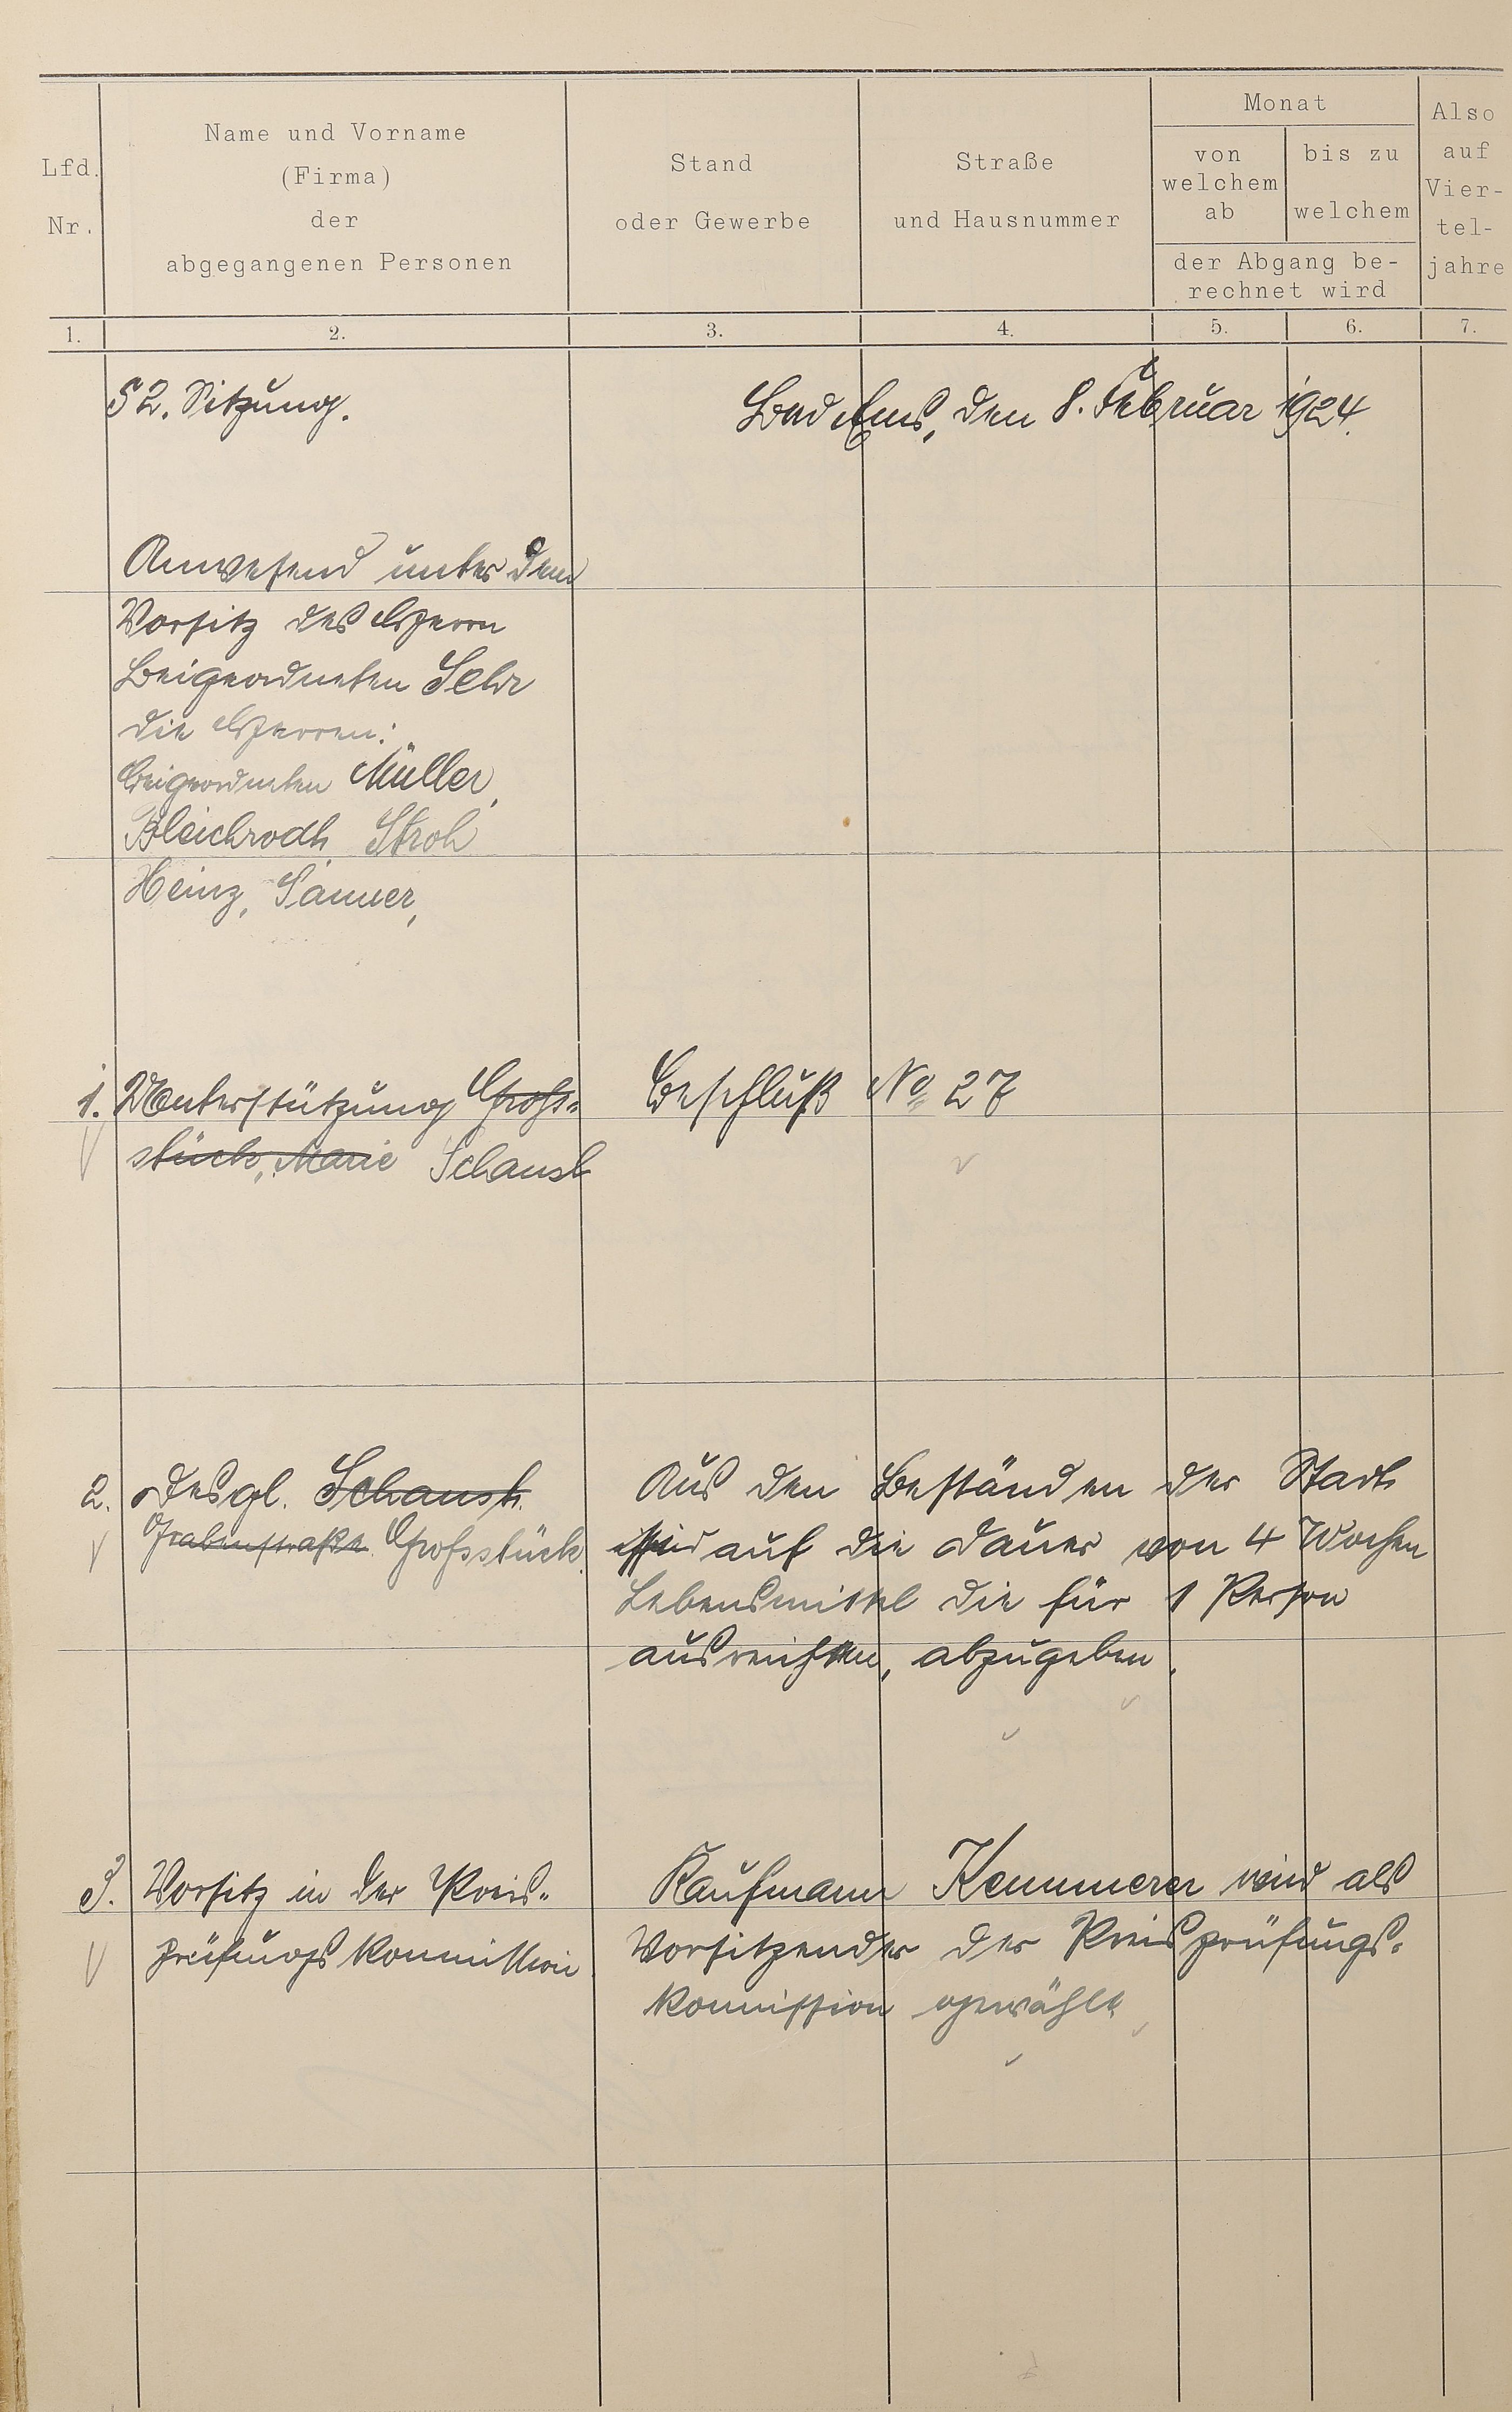 Lfd. Nr.
Name und Vorname
(Firma)
der
abgegangenen Personen
Stand
oder Gewerbe
Straße
und Hausnummer
Monat
von
welchem
ab
bis zu
welchem
der Abgang be-
rechnet wird
Also
auf
Vier-
tel-
jahre
1. 2. 3. 4. 5. 6. 7.
52. Sitzung. Bad Ems, den 8. Februar 1924.
Anwesend unter dem
Vorsitz des Herrn
Beigeordneten Sehr
die Herren:
Beigeordneten Müller,
Bleichrodt, Stroh
Heinz, Sanner,
1. Unterstützung Groß- Beschluß No 27
stück, Marie Schaust
2. Desgl. Schaust. Aus den Beständen der Stadt
Grabenstraße. Großstück. sind auf die Dauer von 4 Wochen
Lebensmittel die für 1 Person
ausreichen, abzugeben.
3. Vorsitz in der Preis- Kaufmann Kemmerer wird als
prüfungskommission Vorsitzender der Preisprüfungs-
kommission gewählt